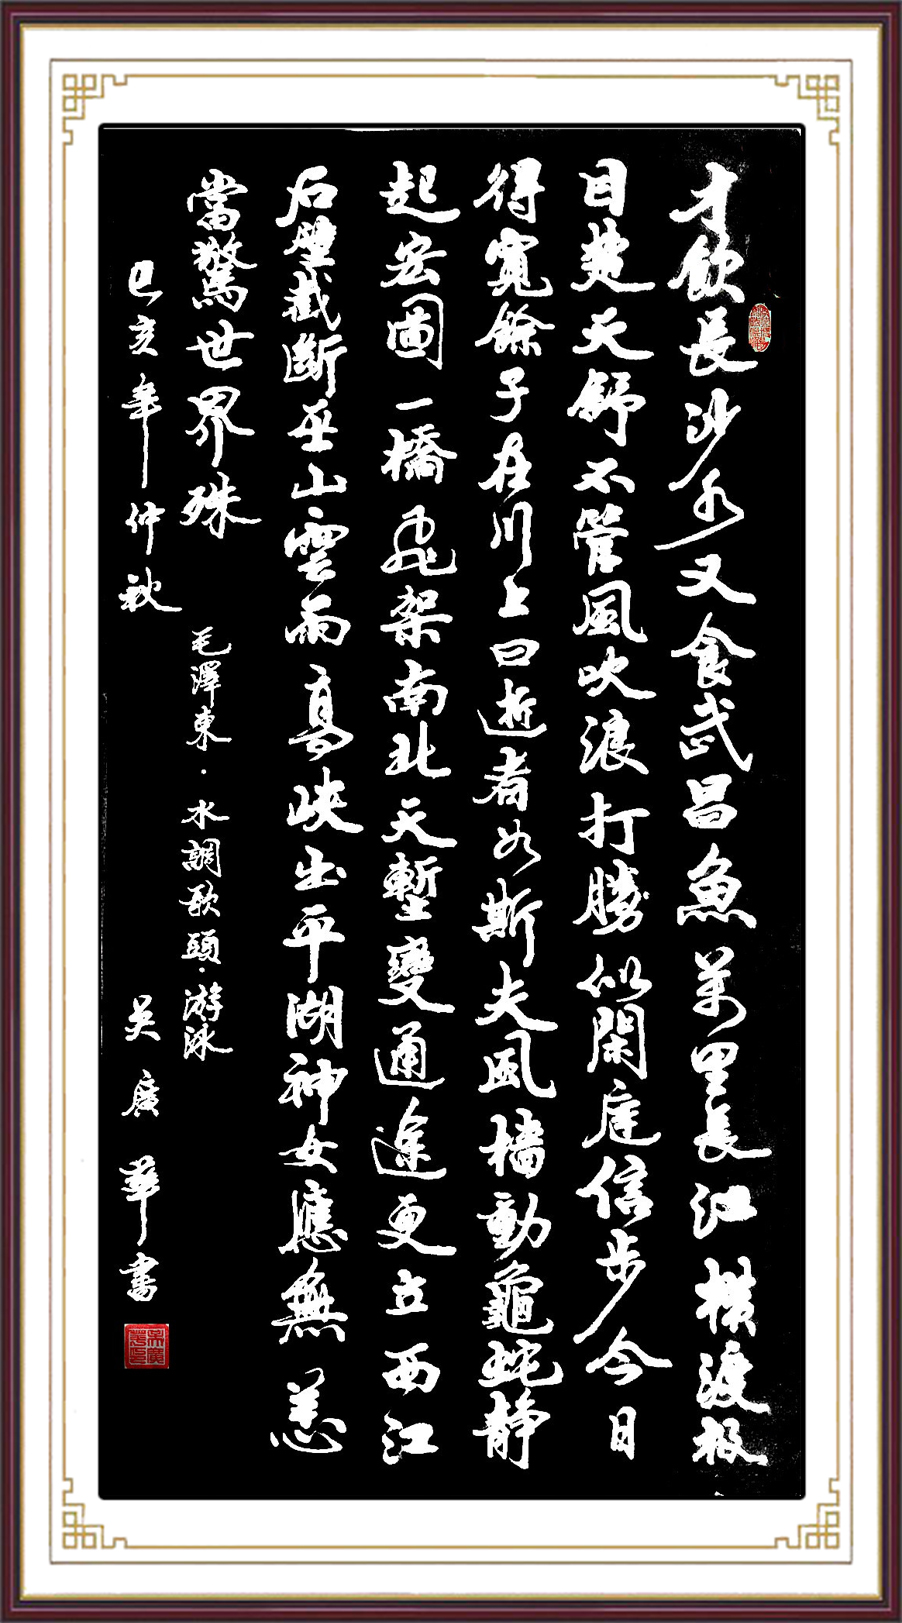 才飲長沙水又食武昌魚萬里長江橫渡極
目楚天舒不管風吹浪打勝似閑庭信步今日
得寬餘子在川上曰逝者如斯夫風檣動龜蛇静
起宏圖一橋飛架南北天塹變通途更立西江
石壁截斷巫山雲雨高峽出平湖神女應無恙
當驚世界殊 毛澤東·水調歌頭·游泳
己亥年仲秋 吴廣華書